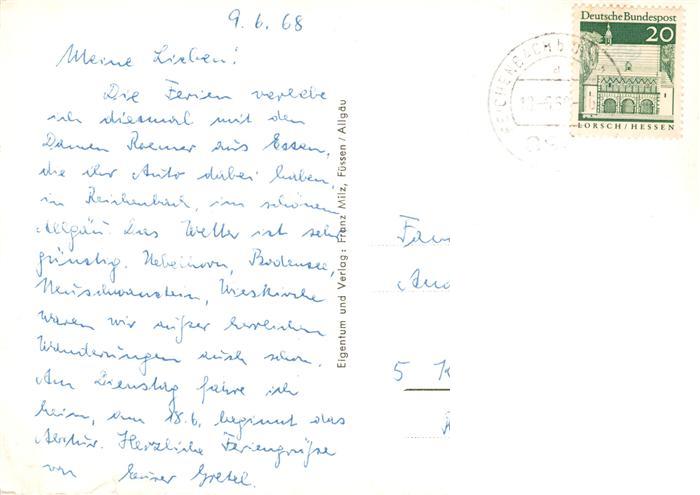 9.6.68
Meine Lieben!
Die Ferien verlebe
ich diesmal mit den
Damen Roemer aus Essen,
die ihr Auto dabei haben,
in Reichenbach, im schönen
Allgäu. Das Wetter ist sehr
günstig. Nebelhorn, Bodensee,
Neuschwanstein, Wieskirche
waren wir außer herrlichen
Wanderungen auch schon.
Am Dienstag fahre ich
heim, am 18.6. beginnt das
Abitur. Herzliche Feriengrüße
von Eurer Gretel.
Eigentum und Verlag: Franz Milz, Füssen / Allgäu
Deutsche Bundespost
20
LORSCH / HESSEN
REICHENBACH b
Fam
5 K